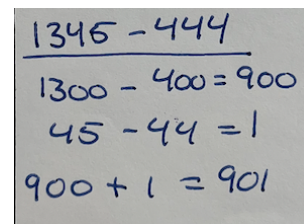 1345 - 444
1300 - 400 = 900
45 - 44 = 1
900 + 1 = 901